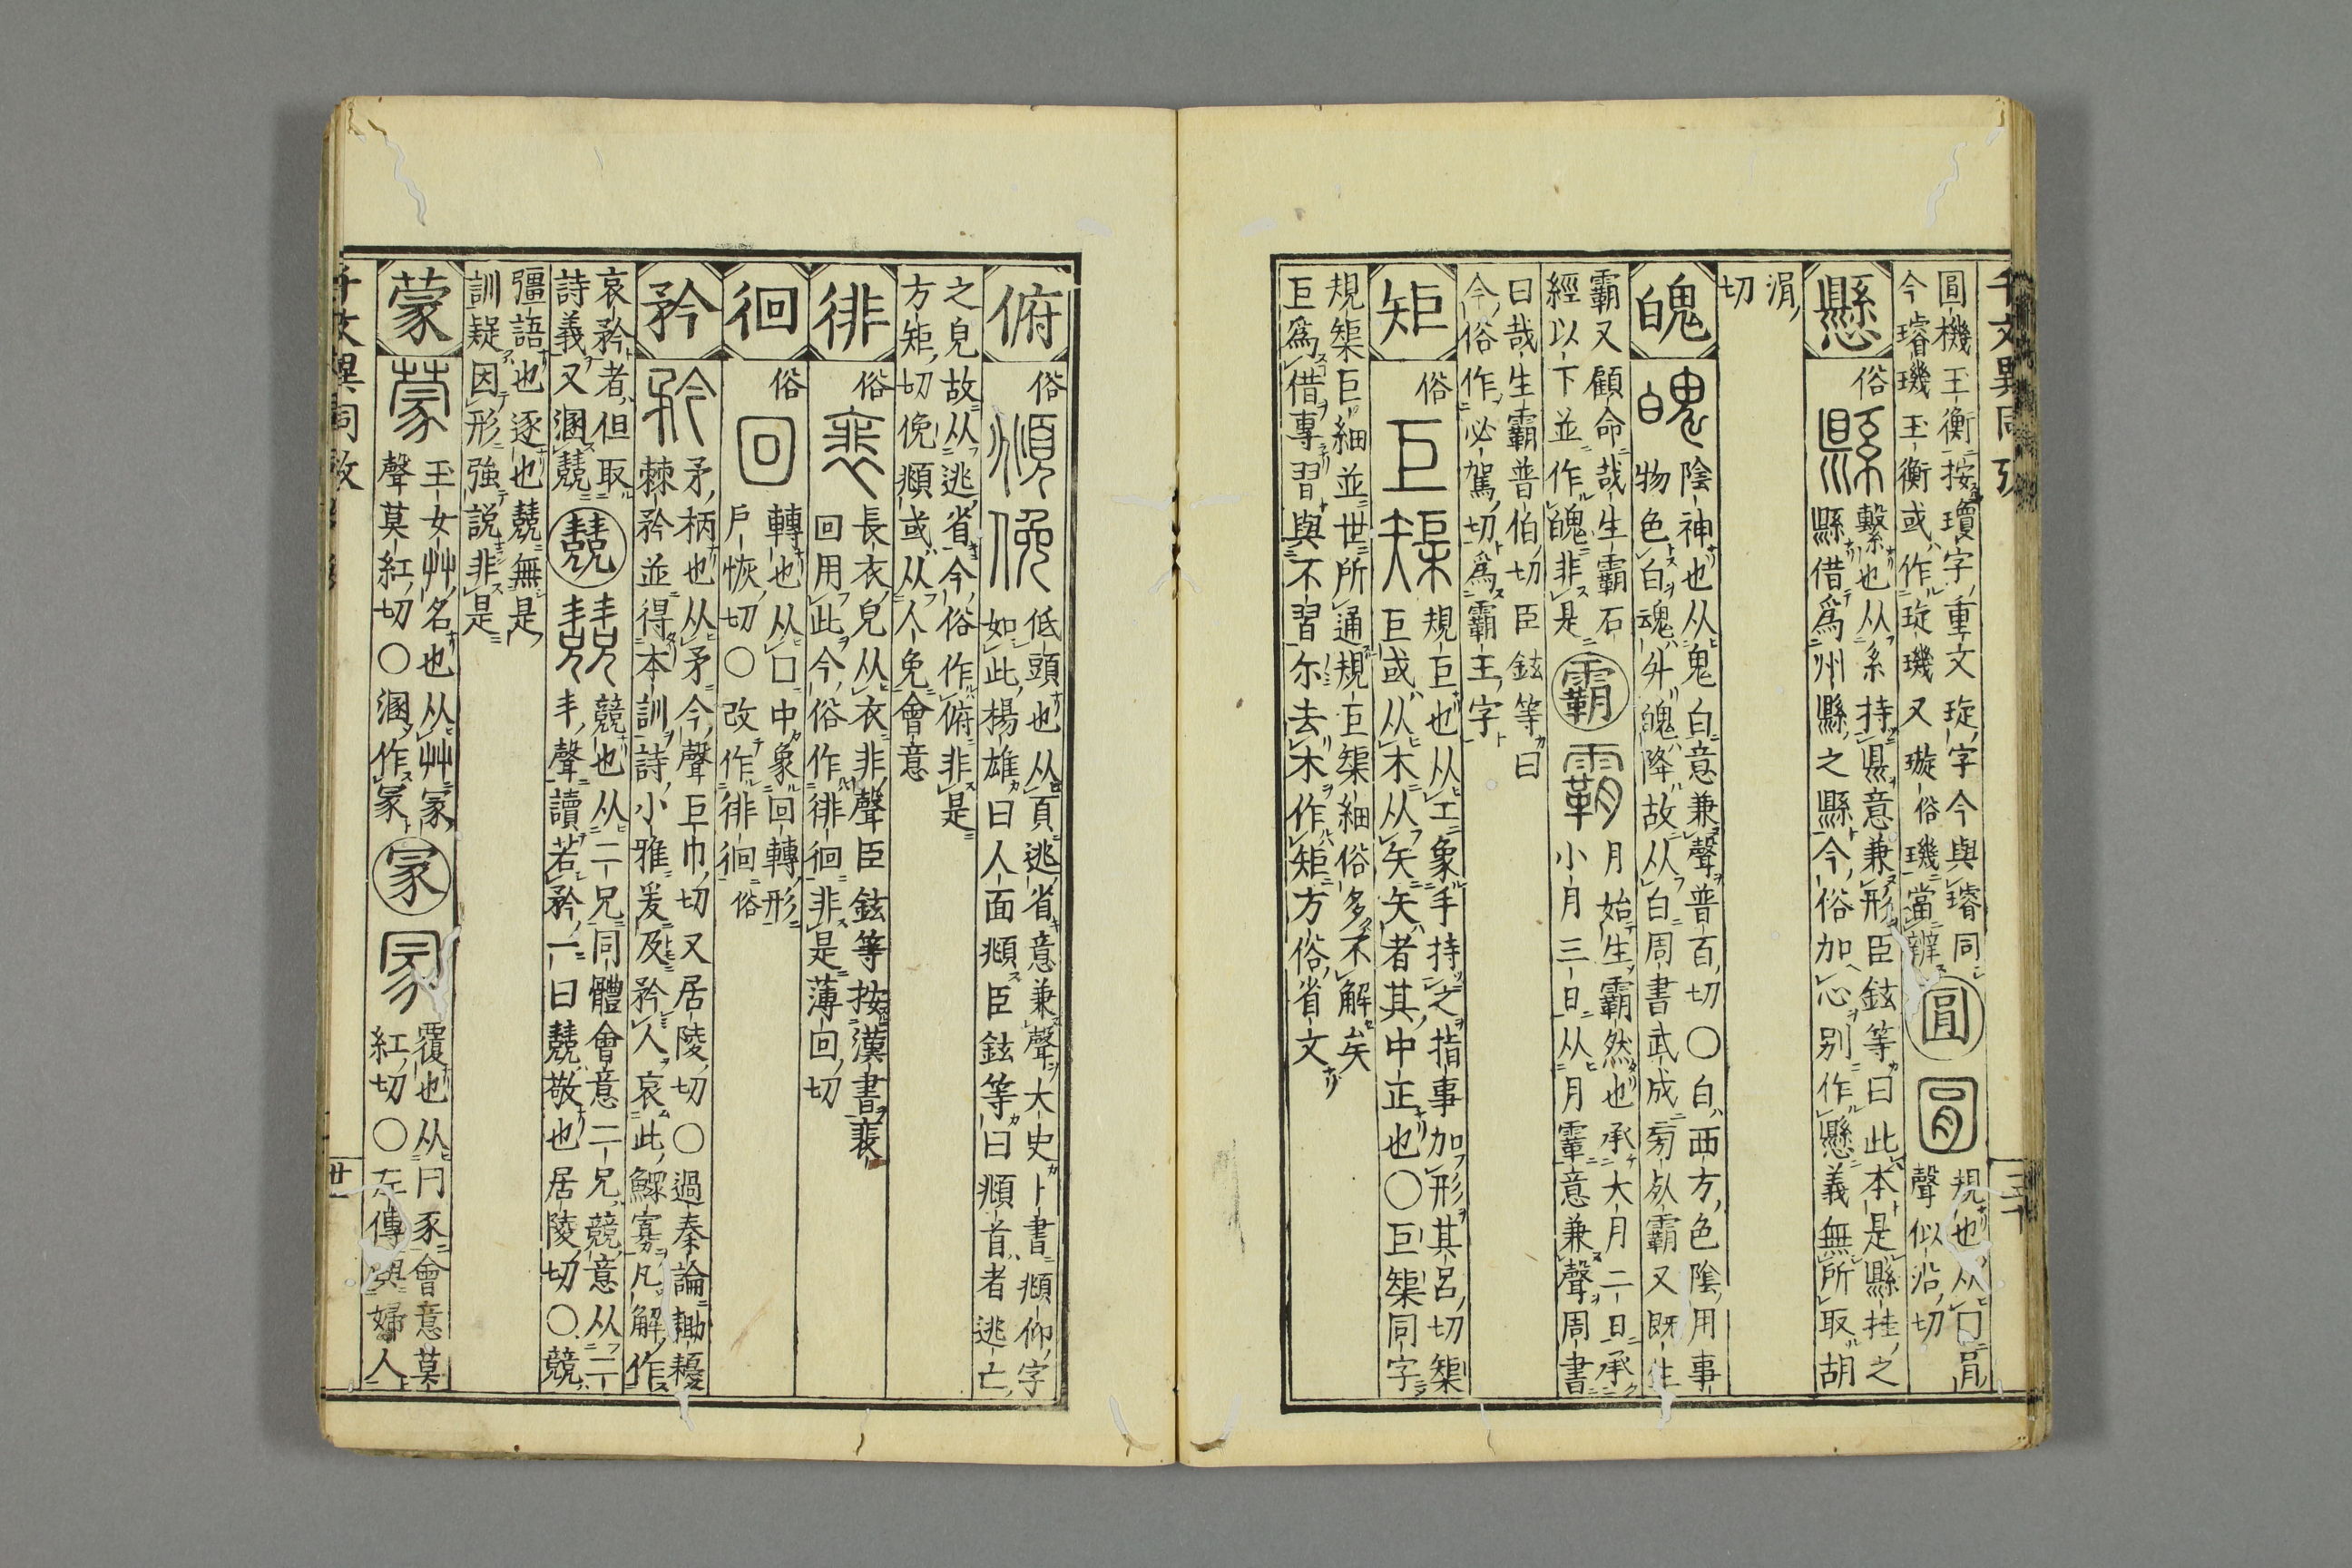 千文異同攷
圓機玉衡按瓊字重文琁字今與璿同
今璿璣玉衡或作琁璣又璇俗璣當辨
圓
規也从囗肙
聲似沿切
懸
俗
縣
繫也从系持県意兼形臣鉉等曰此本是縣挂之
縣借爲州縣之縣今俗加心别作懸義無所取胡
涓
切
魄
陰神也从鬼白意兼聲普百切〇白西方色陰用事
物色白魂升魄降故从白周書武成旁死霸又既生
霸又顧命哉生霸石
經以下並作魄非是
霸
月始生霸然也承大月二日承
小月三日从月䨣意兼聲周書
曰哉生霸普伯切臣鉉等曰
今俗作必駕切爲霸王字
矩
俗
巨
榘
規巨也从工象手持之指事加形其呂切榘
巨或从木从矢矢者其中正也〇巨榘同字
規榘巨細並世所通規巨榘細俗多不解矣
巨爲借專習與不習尓去木作矩方俗省文
俯
俗
頫
俛
低頭也从頁逃省意兼聲大史卜書頫仰字
如此楊雄曰人面頫臣鉉等曰頫首者逃亡
之皃故从逃省今俗作俯非是
方矩切俛頫或从人免會意
徘
俗
裵
長衣皃从衣非聲臣鉉等按漢書裵
回用此今俗作徘徊非是薄回切
徊
俗
回
轉也从囗中象回轉形
戶恢切〇改作徘徊俗
矜
矛柄也从矛今聲巨巾切又居陵切〇過秦論鋤櫌
棘矜並得本訓詩小雅爰及矜人哀此鰥寡凡解作
哀矜者但取
詩義又溷兢
兢
競也从二兄同體會意二兄競意从二
丰聲讀若矜一曰兢敬也居陵切〇競
彊語也逐也兢無是
訓疑因形強説非是
蒙
玉女艸名也从艸冡
聲莫紅切〇溷作冡
冡
覆也从冃豕會意莫
紅切〇左傳與婦人
千文異同攷
廿